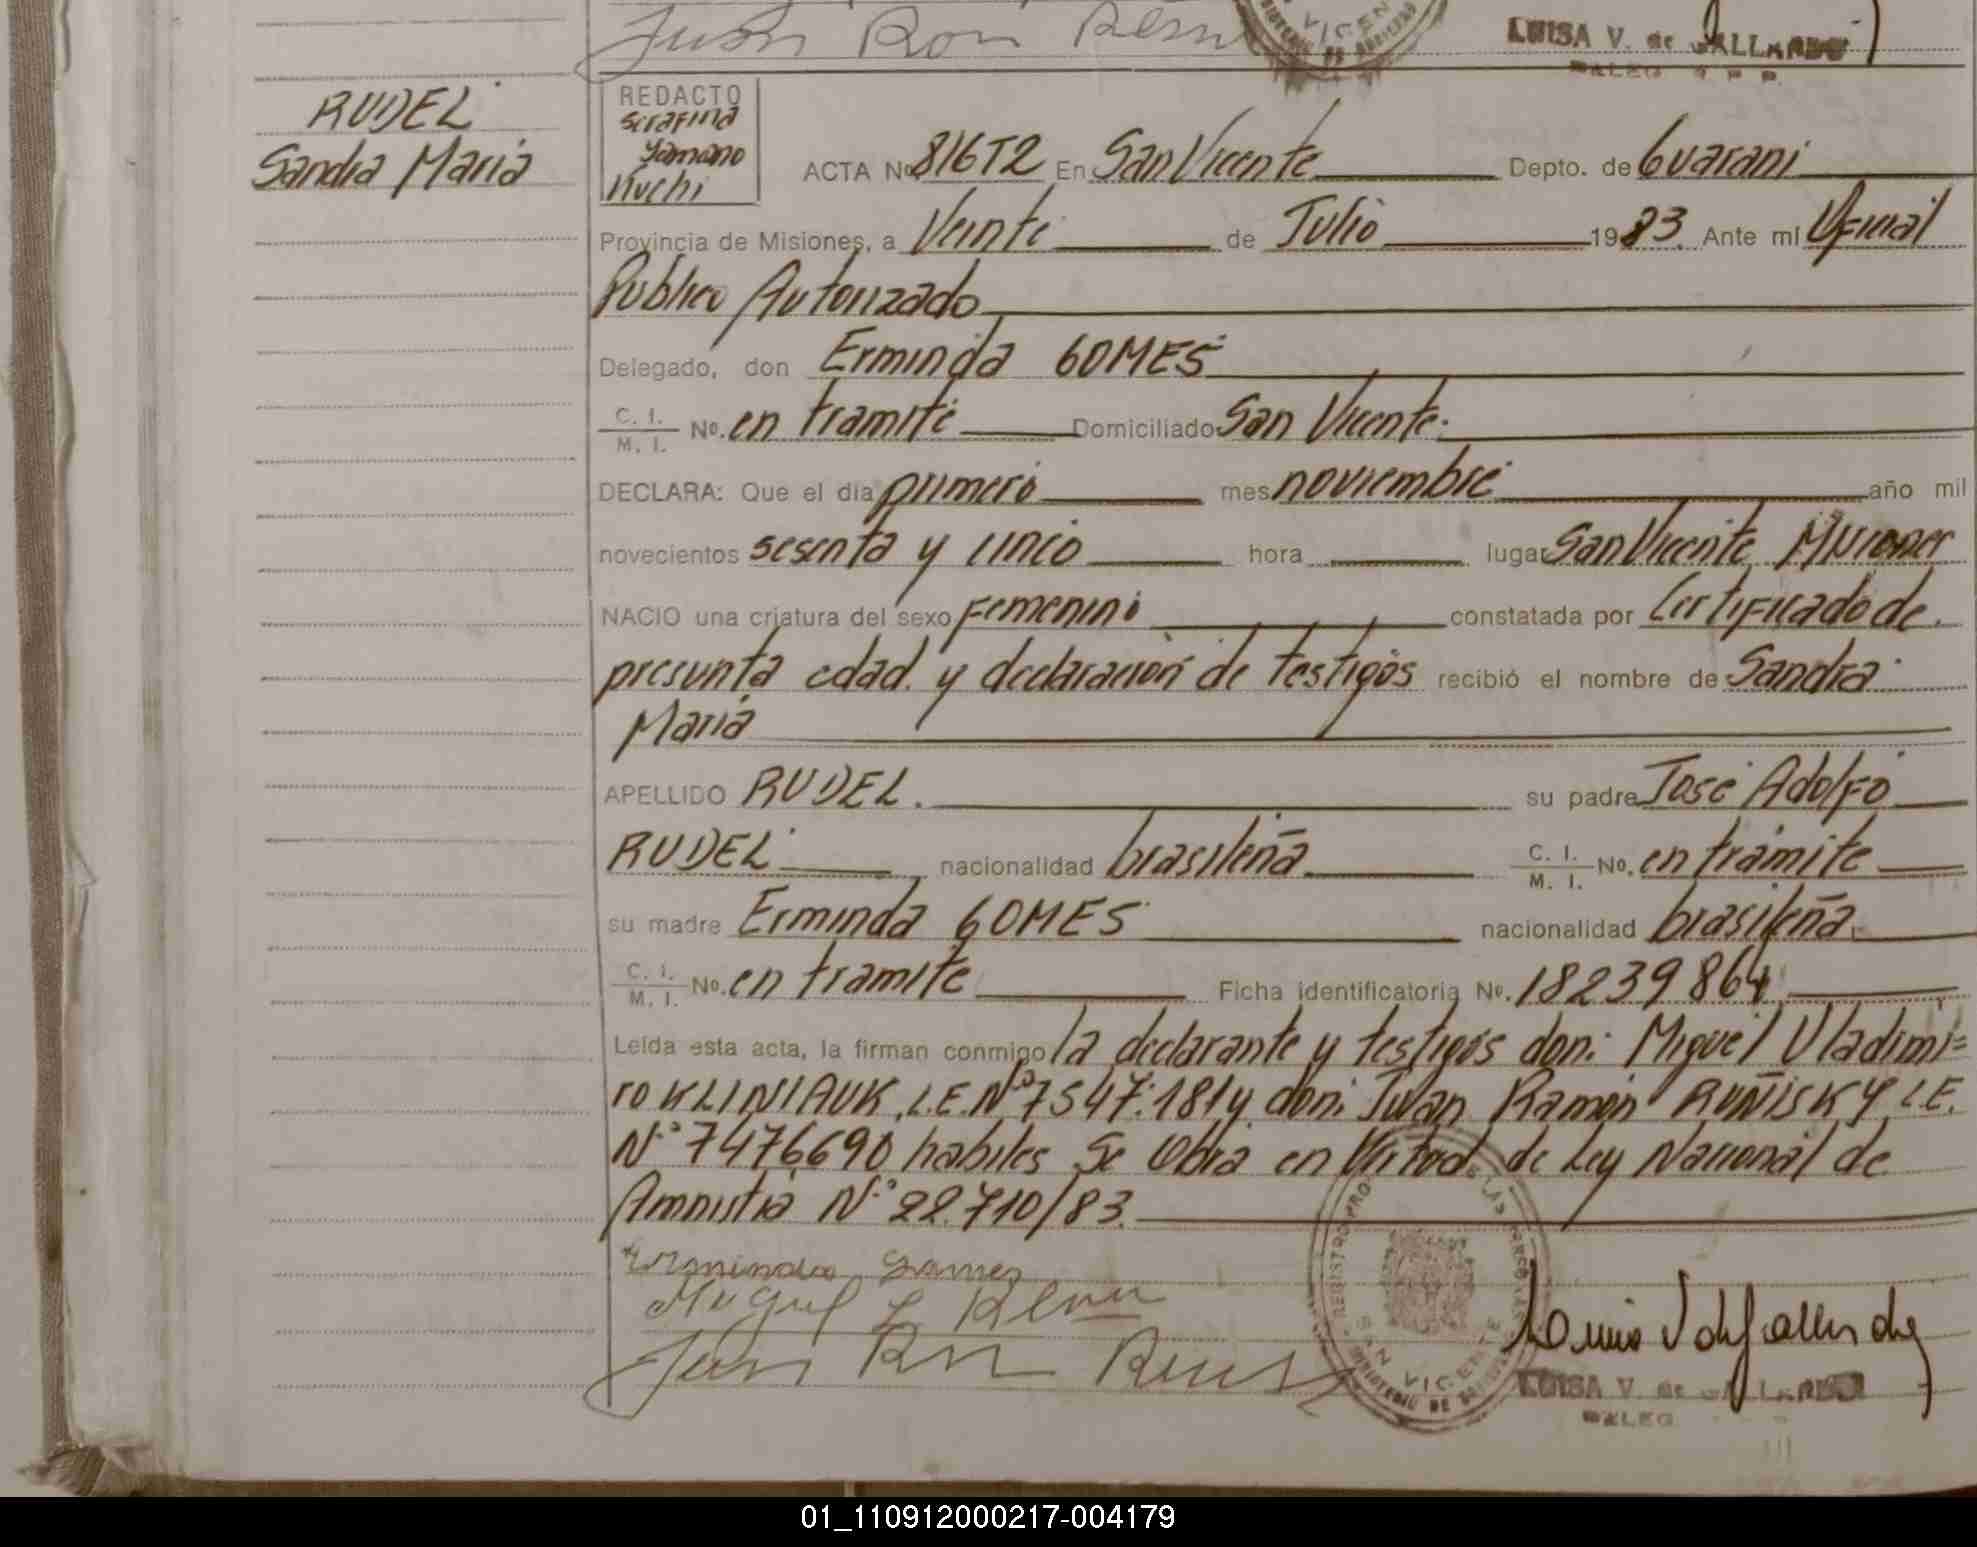 Juan Ron
VICEN
LUISA V. de GALLARDO
RUDEL
Sandra Maria
REDACTO
Serafina
Yamano
Kuchi
ACTA No. 816T2 En San Vicente Depto. de Guarani
Provincia de Misiones, a Veinte de Julio 1983. Ante mí Oficial
Publico Autorizado
Delegado, don Erminda GOMES
C. I. / M. I. No. en tramite Domiciliado San Vicente.
DECLARA: Que el día primero mes noviembre año mil
novecientos sesenta y cinco hora lugar San Vicente Misiones
NACIO una criatura del sexo Femenino constatada por Certificado de
presunta edad. y declaración de testigos recibió el nombre de Sandra
Maria
APELLIDO RUDEL. su padre José Adolfo
RUDEL nacionalidad brasileña C. I. / M. I. No. en trámite
su madre Erminda GOMES nacionalidad brasileña
C. I. / M. I. No. en tramite Ficha identificatoria No. 18239864
Leída esta acta, la firman conmigo la declarante y testigos don: Miguel Vladimi=
ro KLINIAUK, L.E.Nº 7547.181 y don: Juan Ramón RUÑISKY L.E.
Nº 7476690 habiles Se Obra en Virtud de Ley Nacional de
Amnistia Nº 22.710/83.
Erminda Gomes
Miguel
Juan
SAN VICENTE
LUISA V. de GALLARDO
DELEG
01_110912000217-004179